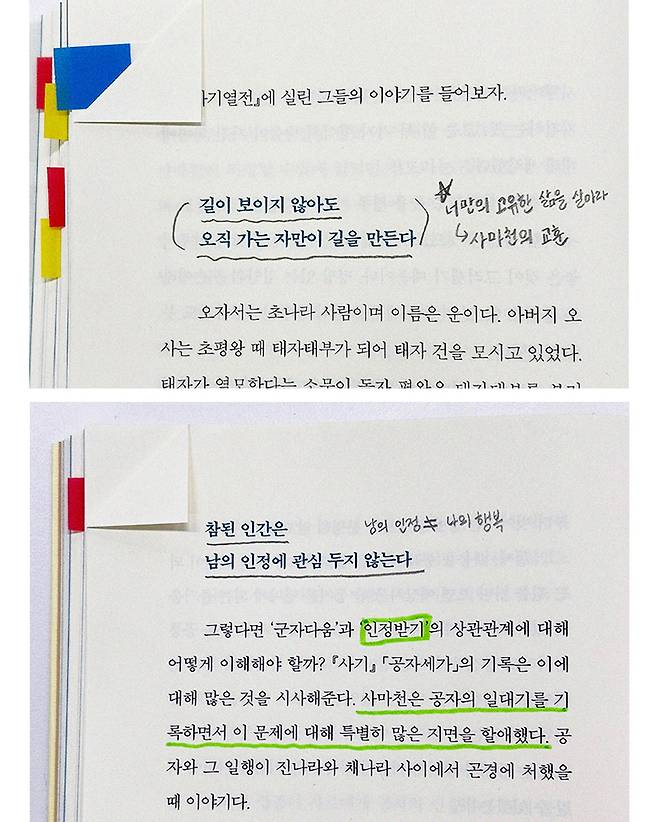 사기열전』에 실린 그들의 이야기를 들어보자.
길이 보이지 않아도
오직 가는 자만이 길을 만든다
너만의 고유한 삶을 살아라
↳사마천의 교훈
오자서는 초나라 사람이며 이름은 운이다. 아버지 오
사는 초평왕 때 태자태부가 되어 태자 건을 모시고 있었다.
참된 인간은
남의 인정에 관심 두지 않는다
남의 인정 ≠ 나의 행복
그렇다면 ‘군자다움’과 ‘인정받기’의 상관관계에 대해
어떻게 이해해야 할까? 『사기』 「공자세가」의 기록은 이에
대해 많은 것을 시사해준다. 사마천은 공자의 일대기를 기
록하면서 이 문제에 대해 특별히 많은 지면을 할애했다. 공
자와 그 일행이 진나라와 채나라 사이에서 곤경에 처했을
때 이야기다.